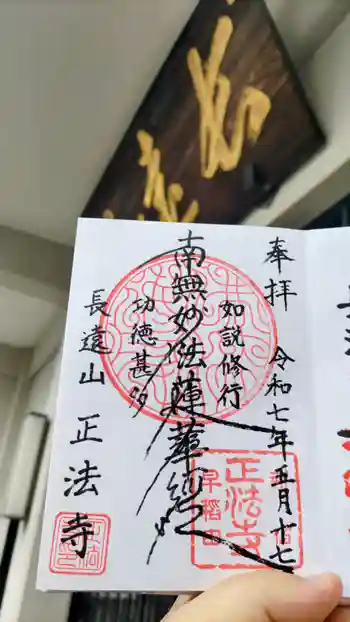 奉拝
令和七年五月十七
如説修行
南無妙法蓮華経
功徳甚多
長遠山
正法寺
正法寺
早稲田